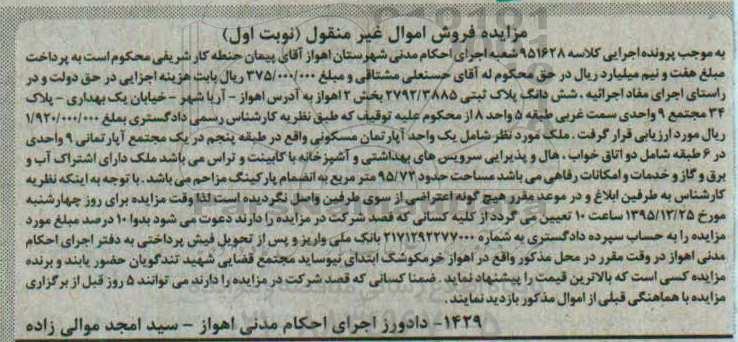 مزایده فروش اموال غیر منقول (نوبت اول)
به موجب پرونده اجرایی کلاسه ۹۵۱۶۲۸ شعبه اجرای احکام مدنی شهرستان اهواز آقای پیمان حنطه کار شریفی محکوم است به پرداخت
مبلغ هفت و نیم میلیارد ریال در حق محکوم له آقای حسنعلی مشتاقی و مبلغ ۳۷۵/۰۰۰/۰۰۰ ریال بابت هزینه اجرایی در حق دولت و در
راستای اجرای مفاد اجرائیه . شش دانگ پلاک ثبتی ۲۷۹۲/۳۸۸۵ بخش ۲ اهواز به آدرس اهواز - آریا شهر - خیابان یک بهداری - پلاک
۳۴ مجتمع ۹ واحدی سمت غربی طبقه ۵ واحد ۸ از محکوم علیه توقیف که طبق نظریه کارشناس رسمی دادگستری بمبلغ ۱/۹۲۰/۰۰۰/۰۰۰
ریال مورد ارزیابی قرار گرفت . ملک مورد نظر شامل یک واحد آپارتمان مسکونی واقع در طبقه پنجم در یک مجتمع آپارتمانی ۹ واحدی
در ۶ طبقه شامل دو اتاق خواب ، هال و پذیرایی سرویس های بهداشتی و آشپزخانه با کابینت و تراس می باشد ملک دارای اشتراک آب و
برق و گاز و خدمات و امکانات رفاهی می باشد مساحت حدود ۹۵/۷۲ متر مربع به انضمام پارکینگ مزاحم می باشد . با توجه به اینکه نظریه
کارشناس به طرفین ابلاغ و در موعد مقرر هیچ گونه اعتراضی از سوی طرفین واصل نگردیده است لذا وقت مزایده برای روز چهارشنبه
مورخ ۱۳۹۵/۱۲/۲۵ ساعت ۱۰ تعیین می گردد از کلیه کسانی که قصد شرکت در مزایده را دارند دعوت می شود بدوا ۱۰ درصد مبلغ مورد
مزایده را به حساب سپرده دادگستری به شماره ۲۱۷۱۲۹۲۲۷۷۰۰۰ بانک ملی واریز و پس از تحویل فیش پرداختی به دفتر اجرای احکام
مدنی اهواز در وقت مقرر در محل مذکور واقع در اهواز خرمکوشک ابتدای نیوساید مجتمع قضایی شهید تندگویان حضور یابند و برنده
مزایده کسی است که بالاترین قیمت را پیشنهاد نماید . ضمنا کسانی که قصد شرکت در مزایده را دارند می توانند ۵ روز قبل از برگزاری
مزایده با هماهنگی قبلی از اموال مذکور بازدید نمایند .
۱۴۲۹- دادورز اجرای احکام مدنی اهواز - سید امجد موالی زاده